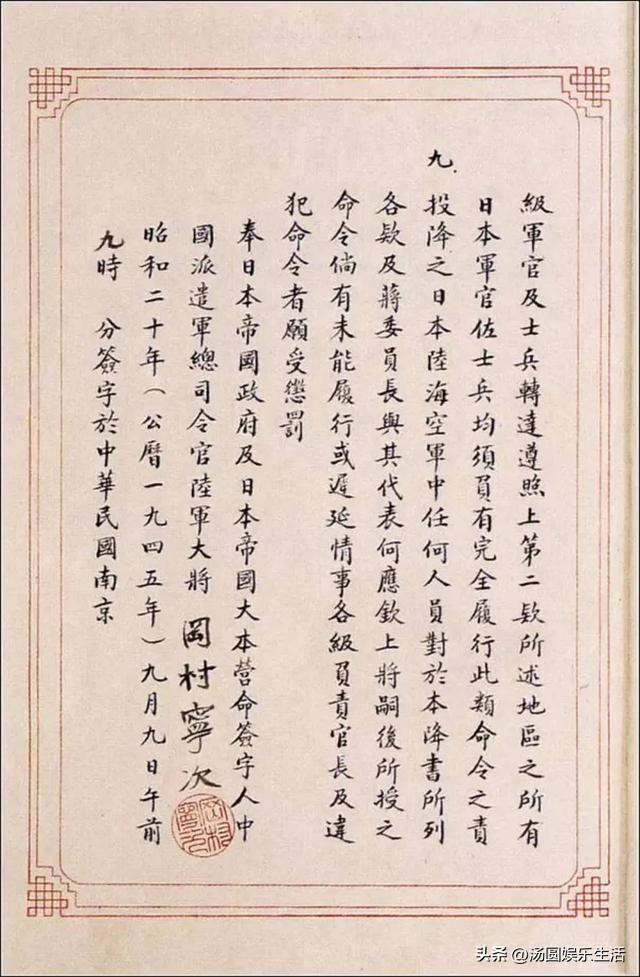 級軍官及士兵轉達遵照上第二欵所述地區之所有
日本軍官佐士兵均須負有完全履行此類命令之責
九、投降之日本陸海空軍中任何人員對於本降書所列
各欵及蔣委員長與其代表何應欽上將嗣後所授之
命令倘有未能履行或遲延情事各級負責官長及違
犯命令者願受懲罰
奉日本帝國政府及日本帝國大本營命簽字人中
國派遣軍總司令官陸軍大將 岡村寧次
昭和二十年(公曆一九四五年)九月九日午前
九時 分簽字於中華民國南京
岡村寧次
头条 @汤圆娱乐生活